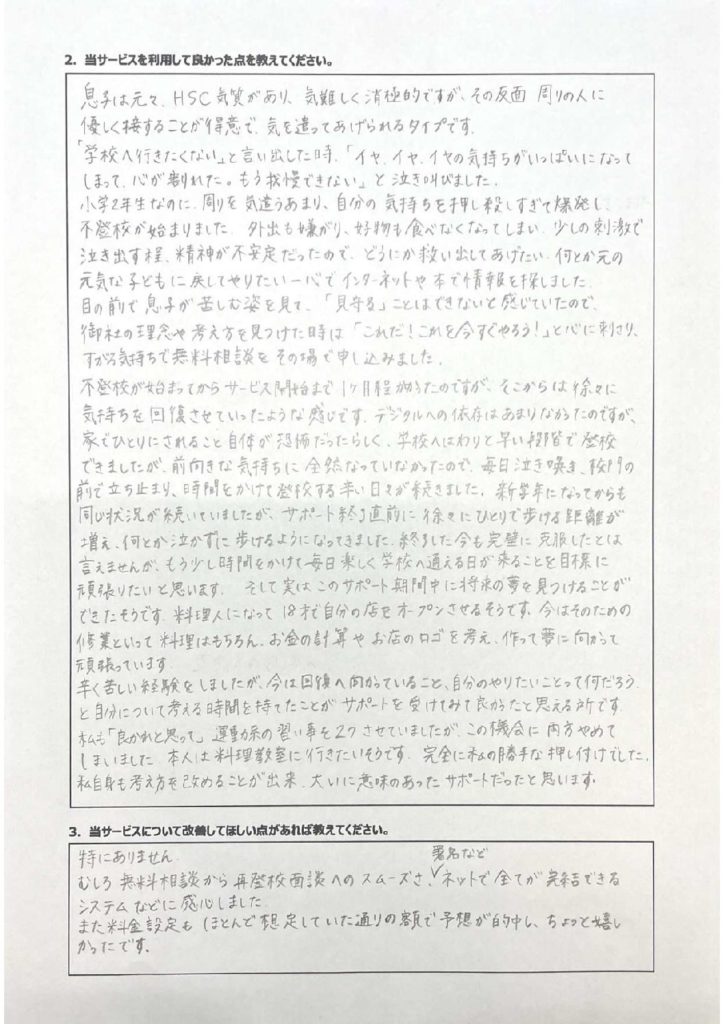 2. 当サービスを利用して良かった点を教えてください。
息子は元々、HSC気質があり、気難しく消極的ですが、その反面 周りの人に
優しく接することが得意で、気を遣ってあげられるタイプです。
「学校へ行きたくない」と言い出した時、「イヤ、イヤ、イヤの気持ちがいっぱいになって
しまって、心が割れた。もう我慢できない」と泣き叫びました。
小学2年生なのに、周りを気遣うあまり、自分の気持ちを押し殺しすぎて爆発し
不登校が始まりました。外出も嫌がり、好物も食べなくなってしまい、少しの刺激で
泣き出す程、精神が不安定だったので、どうにか救い出してあげたい、何とか元の
元気な子どもに戻してやりたい一心でインターネットや本で情報を探しました。
目の前で息子が苦しむ姿を見て、「見守る」ことはできないと感じていたので、
御社の理念や考え方を見つけた時は「これだ！これを今すぐやろう！」と心に刺さり、
すがる気持ちで無料相談をその場で申し込みました。
不登校が始まってからサービス開始まで1ヶ月程かかったのですが、そこからは徐々に
気持ちを回復させていったような感じです。デジタルへの依存はあまりなかったのですが、
家でひとりにされること自体が恐怖だったらしく、学校へはわりと早い段階で登校
できましたが、前向きな気持ちに全然なっていなかったので、毎日泣き喚き、校門の
前で立ち止まり、時間をかけて登校する辛い日々が続きました。新学年になってからも
同じ状況が続いていましたが、サポート終了直前に徐々にひとりで歩ける距離が
増え、何とか泣かずに歩けるようになってきました。終了した今も完璧に克服したとは
言えませんが、もう少し時間をかけて毎日楽しく学校へ通える日が来ることを目標に
頑張りたいと思います。 そして実はこのサポート期間中に将来の夢を見つけることが
できたそうです。料理人になって18才で自分の店をオープンさせるそうです。今はそのための
修業といって料理はもちろん、お金の計算やお店のロゴを考え、作って夢に向かって
頑張っています。
辛く苦しい経験をしましたが、今は回復へ向かっていること、自分のやりたいことって何だろう
と自分について考える時間を持てたことがサポートを受けてみて良かったと思える所です。
私も「良かれと思って」運動系の習い事を2つさせていましたが、この機会に両方やめて
しまいました。本人は料理教室に行きたいそうです。完全に私の勝手な押し付けでした。
私自身も考え方を改めることが出来、大いに意味のあったサポートだったと思います。
3. 当サービスについて改善してほしい点があれば教えてください。
特にありません。
署名など
むしろ無料相談から再登校面談へのスムーズさ、ネットで全てが完結できる
システムなどに感心しました。
また料金設定もほとんど想定していた通りの額で予想が的中し、ちょっと嬉し
かったです。